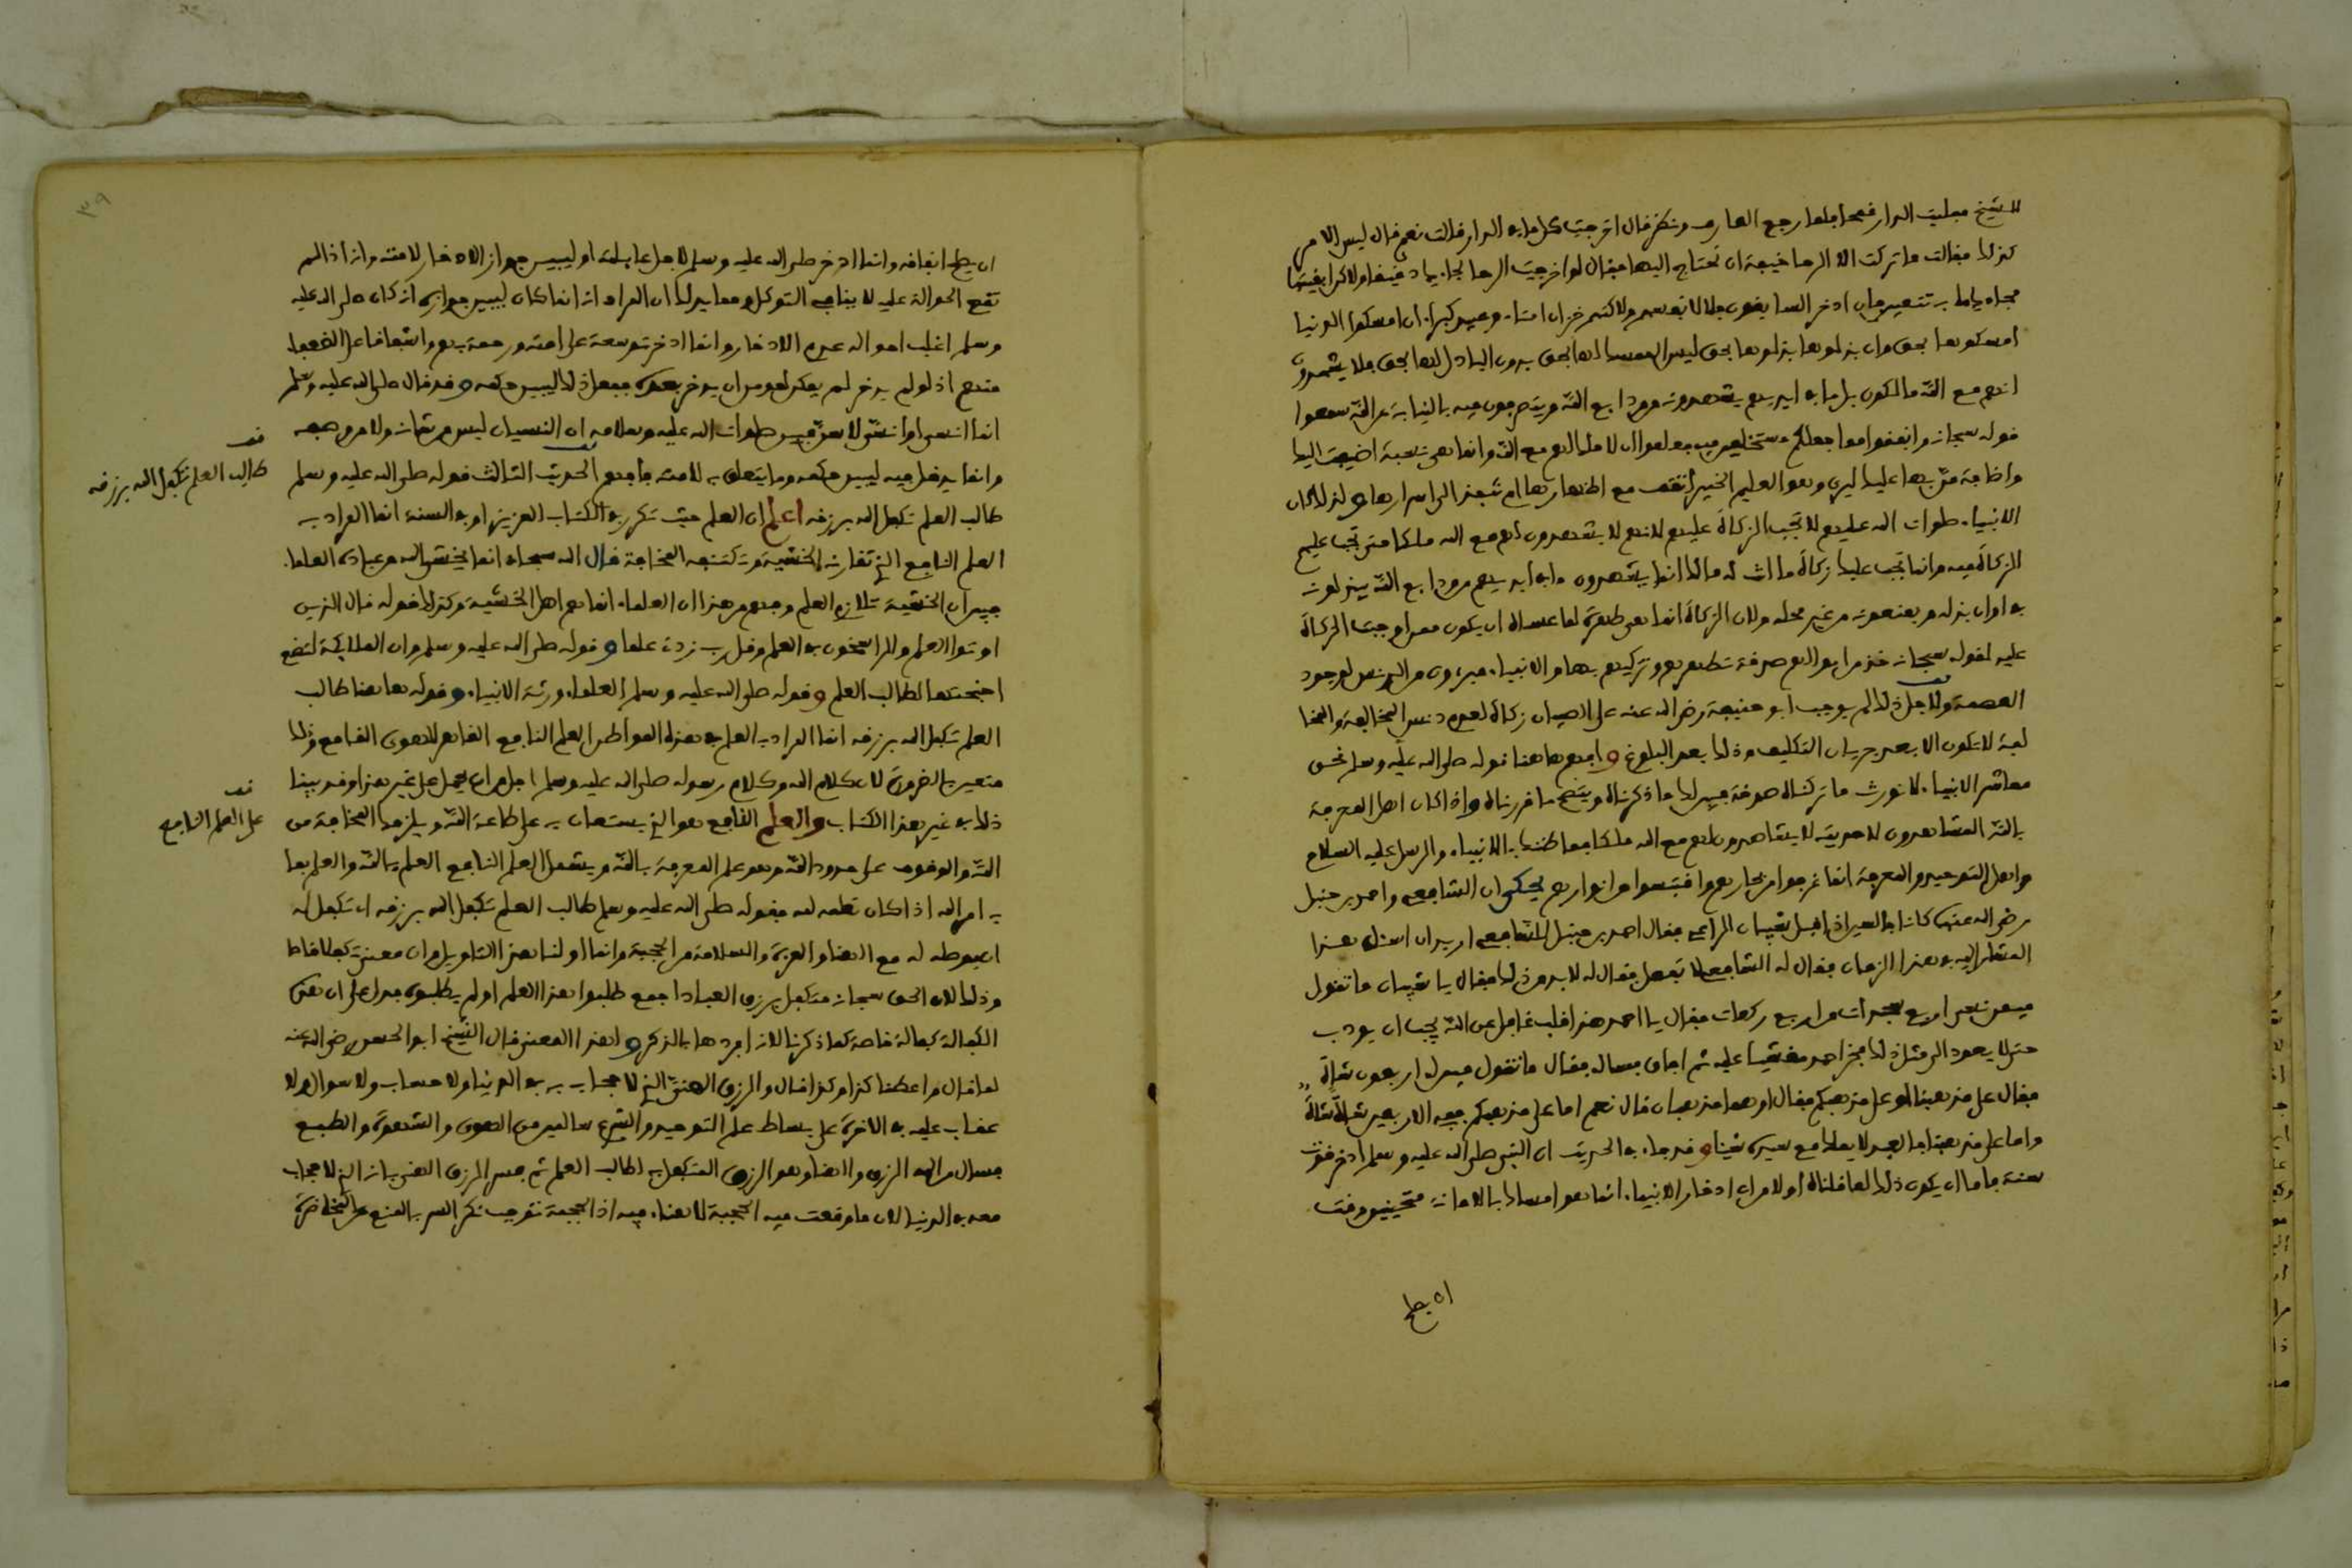 للشيخ فملئت الدار قمحا فلما رجع العارف ونظر قال اخرجت كل ما في الدار قالت نعم قال ليس الامر
كذلك فقالت ما تركت الا الرحا خيفة ان نحتاج اليها فقال لو اخرجت الرحا لجاءك دقيقا ولاكن ابقيتها
فجاءك ما به تتعبين فان ادخر السابقون فلا لانفسهم ولاكنهم خزان امناء وعبيد كبراء ان امسكوا الدنيا
امسكوها بحق وان بذلوها بذلوها بحق ليس الممسك لها بحق بدون الباذل لها بحق فلا يشهدون
انهم مع الله مالكون بل ما في ايديهم يشهدونه من ودايع الله ويتصرفون فيه بالنيابة عن الله سمعوا
قوله سبحانه وانفقوا مما جعلكم مستخلفين فيه فعلموا ان لا ملك لهم مع الله وانما هي نسبة اضيفت اليك
واضافة من بها عليك ليرى وهو العليم الخبير اتقف مع اظهارها ام تنفذ الى اسرارها ولذلك كان
الانبياء صلوات الله عليهم لا تجب الزكاة عليهم لانهم لا يشهدون لهم مع الله ملكا حتى تجب عليهم
الزكاة فيه وانما تجب عليك زكاة ما انت له مالك انما يشهدون ما في ايديهم من ودايع الله يبذلونه
في اوان بذله ويمنعونه من غير محله ولان الزكاة انما هي طهرة لما عساه ان يكون ممن وجبت الزكاة
عليه لقوله سبحانه خذ من اموالهم صدقة تطهرهم وتزكيهم بها والانبياء مبرءون من الدنس لوجود
العصمة ولاجل ذلك لم يوجب ابو حنيفة رضي الله عنه على الصبيان زكاة لعدم دنس المخالفة والمخا
لفة لا تكون الا بعد جريان التكليف وذلك بعد البلوغ وافهم هاهنا قوله صلى الله عليه وسلم نحن
معاشر الانبياء لا نورث ما تركناه صدقة يبين لك ما ذكرناه ويتضح ما قررناه واذا كان اهل المعرفة
بالله المشاهدون لاحديته لا يشاهدون لهم مع الله ملكا فما ظنك بالانبياء والرسل عليه السلام
واهل التوحيد والمعرفة انما غرفوا من بحارهم واقتبسوا من انوارهم يحكى ان الشافعي واحمد بن حنبل
رضي الله عنهما كانا جالسين اذ اقبل شيبان الراعي فقال احمد بن حنبل للشافعي اريد ان اسئل هذا
المشار اليه في هذا الزمان فقال له الشافعي لا تفعل فقال له لا بد من ذلك فقال يا شيبان ما تقول
فيمن نسي اربع سجدات من اربع ركعات فقال يا احمد هذا قلب غافل عن الله يجب ان يودب
حتى لا يعود الى مثل ذلك فخر احمد مغشيا عليه ثم افاق فساله فقال ما تقول فيمن له اربعون شاة
فقال على مذهبنا او على مذهبكم فقال اوهما مذهبان قال نعم اما على مذهبكم ففي الاربعين شاة شاة
واما على مذهبنا فالعبد لا يملك مع سيده شيئا وقد جاء في الحديث ان النبي صلى الله عليه وسلم ادخر قوت
سنة فاما ان يكون ذلك لما قلناه اولا من ان ادخار الانبياء انما هو امساك بالامانة متحينين وقت
ان يصلح
٣٩
ان يصلح انفاقه وانما ادخر صلى الله عليه وسلم لاجل عائلته او ليبين جواز الادخار لامته وانه اذا لم
تقع الحوالة عليه لا ينافي التوكل ومما يدلك ان المراد انه انما كان ليبين جوازه ان كان صلى الله عليه
وسلم اغلب احواله عدم الادخار وانما ادخر توسعة على امته ورحمة بهم واشفاقا على الضعفا
منهم اذ لو لم يدخر لم يمكن لمومن ان يدخر بعده ففعل ذلك ليبين حكمه وقد قال صلى الله عليه وسلم
انما انسى او انسى لاسن فبين صلوات الله عليه وسلامه ان النسيان ليس من شانه ولا من وصفه
وانما يدخل فيه ليبين حكمه وما يتعلق به لامته فافهم الحديث الثالث قوله صلى الله عليه وسلم
طالب العلم تكفل الله برزقه اعلم ان العلم حيث تكرر في الكتاب العزيز او في السنة انما المراد به
العلم النافع الذي تقارنه الخشية وتكتنفه المخافة قال الله سبحانه انما يخشى الله من عباده العلماء
فبين ان الخشية تلازم العلم وفهم من هذا ان العلماء انما هم اهل الخشية وكذلك قوله قال الذين
اوتوا العلم والراسخون في العلم وقل رب زدني علما وقوله صلى الله عليه وسلم وان الملايكة لتضع
اجنحتها لطالب العلم وقوله صلى الله عليه وسلم العلماء ورثة الانبياء وقوله هاهنا طالب
العلم تكفل الله برزقه انما المراد بالعلم في هذه المواطن العلم النافع القاهر للهوى القامع وذلك
متعين بالضرورة لان كلام الله وكلام رسوله صلى الله عليه وسلم اجل من ان يحمل على غير هذا وقد بينا
ذلك في غير هذا الكتاب والعلم النافع هو الذي يستعان به على طاعة الله ويلزمك المخافة من
الله والوقوف على حدود الله وهو علم المعرفة بالله ويشمل العلم النافع العلم بالله والعلم بما
به امر الله اذا كان تعلمه لله فقوله صلى الله عليه وسلم طالب العلم تكفل الله برزقه اي تكفل له
ان يوصله له مع الهناء والعزة والسلامة من الحجبة وانما اولنا هذا التاويل لان معنى تكفل
وذلك لان الحق سبحانه متكفل برزق العباد اجمع طلبوا هذا العلم او لم يطلبوه فدل على ان هذه
الكفالة كفالة خاصة كما ذكرنا لانه افردها بالذكر ولهذا المعنى قال الشيخ ابو الحسن رضي الله عنه
لما قال واعطنا كذا وكذا قال والرزق الهني الذي لا حجاب به في الدنيا ولا حساب ولا سوال ولا
عقاب عليه في الاخرة على بساط علم التوحيد والشرع سالمين من الهوى والشهوة والطبع
فسال من الله الرزق والهنا وهو الرزق المتكفل به لطالب العلم ثم فسر الرزق الهني بانه الذي لا حجاب
معه في الدنيا لان ما وقعت فيه الحجبة لا هناء فيه اذ الحجبة توجب نكد السر بالمنع عن المحاضرة
قف
طالب العلم تكفل الله برزقه
قف
على العلم النافع